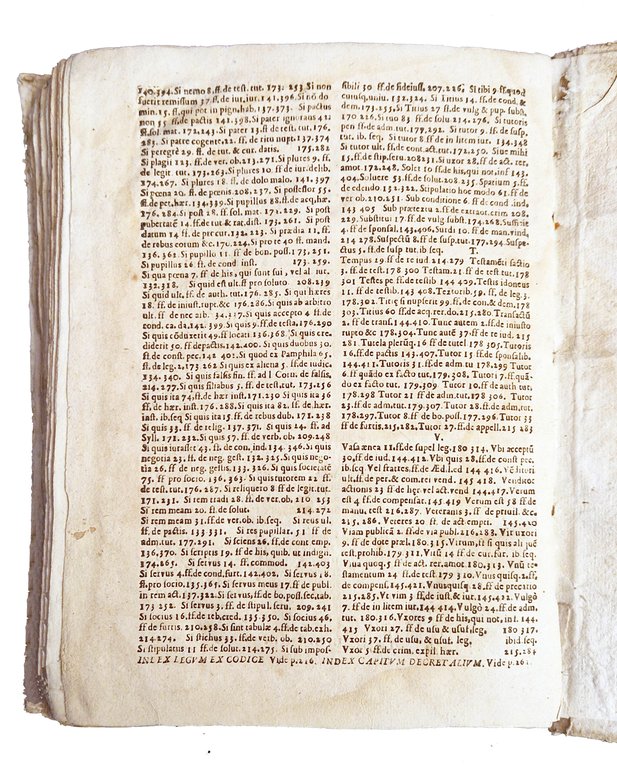 140.394. Si nemo 8. ff. de test. tut. 173. 253 Si non
fuerit remissum 37. ff. de iur. iur. 141.396. Si nō do
min. 15. ff. qui pot in pign. hab. 137.373. Si pactus
non 55 ff. de pactis 141.398. Si pater ignorans 42
ff. sol. mat. 172.243. Si pater 13 ff. de test. tut. 176.
283. Si patre cogente. 22. ff. de ritu nupt. 137.374
Si peregrè 29. ff. de tut. & cur. datis. 175.282
Si plagii 123. ff. de ver. ob. 213.271. Si plures 9. ff.
de legit tut. 173.263. Si plures 10 ff. de iur. delib.
174.267. Si plures 18 ff. de dolo malo. 141.397
Si pœna 20. ff. de pœnis. 208.237. Si posseßor 55.
ff. de pet. hær. 134.339. Si pupillus 88. ff. de acq. hær.
176.284. Si post 28. ff. sol. mat. 171.229. Si post
pubertatē 14. ff. de tut. & rat. dist. 173.261. Si post
datum 14 ff. de procur. 132.223. Si prædia 11. ff.
de rebus eorum &c. 176.224. Si pro te 40 ff. mand.
136.361. Si pupillo 11 ff. de bon. poss. 173.251.
Si pupillus 26 ff. de cond. inst 173.259.
Si qua pœna 7. ff de his, qui sunt sui, vel al iur.
132.318. Si quid est ult. ff pro soluto 208.239
Si quid ult. ff. de auth. tut. 176.285. Si qui hæres
18 ff. de iniust. rupt. &c 176.286. Si quis ab arbitro
ult. ff de nec arb. 34.337. Si quis accepto 4 ff. de
cond. ca. da. 142.399 Si quis 9. ff. de testa. 176.290
Si quis cōduxerit 49. ff locati. 136.368. Si quis cre.
diderit 50. ff de pactis. 142.400. Si quis duobus 30.
ff. de const. pec. 142 401. Si quod ex Pamphila 65.
ff. de leg. 2. 173.262 Si quis ex aliena 5. ff. de iudic.
134.340. Si quis falsis fin. ff. ad l. Corn. de falsis.
214.277. Si quis filiabus 5. ff. de test. tut. 173.256
Si quis ita 74. ff. de hær inst. 171.230 Si quis ita 36
ff. de hær. inst. 176.288. Si quis ita 82 ff. de. hær.
inst. ib. seq Si quis ita 15. ff. de rebus dub. 171.238
Si quis 33. ff. de relig. 137.371. Si quis 24. ff. ad
Syll. 171.232. Si quis 57. ff. de verb. ob. 209.248
Si quis iurasset 43. ff. de con. ind. 134.346. Si quis
negotia 23. ff. de neg. gest. 132.325. Si quis nego-
tia 26. ff de neg. gestis. 133.326. Si quis societatē
75. ff pro socio. 136.363. Si quis tutorem 22 ff.
de test. tut. 176.287. Si reliquero 8 ff de legit. tut.
171.231. Si rem tradi 28 ff. de ver. ob. 210 253
Si rem meam 20. ff. de solut. 214.272
Si rem meam 31. ff. de ver. ob. ib. seq. Si reus ul.
ff. de pactis. 133 331. Si res pupillar. 51 ff de
adm. tut. 177.291. Si sciens 26. ff. de cont emp.
136.370. Si scriptis 19. ff de his, quib. ut indign.
174.265. Si servus 14. ff. commod. 142.403
Si servus 4. ff. de cond. furt. 142.402. Si servus 18.
ff. pro socio. 135.365. Si servus meus 17 ff. de publ.
in rem act. 137.322. Si servus. ff. de bo. poss. sec. tab.
173 252. Si servus 3. ff. de stipul. seru. 209.241
Si socius 16. ff. de reb. cred. 135.350. Si socius 46.
ff de furtis. 210.258. Si sint tabulæ 4. ff. de tab. exh.
214.274. Si stichus 33. ff. de verb. ob. 210.250
Si stipulatus 11 ff. de solut. 214.275. Si sub impos-
sibili 30 ff. de fideiuss. 207.226. Si tibi 9. ff. quod
cuiusq. uniu. 132.324. Si Titius 14. ff. de cond. &
dem. 173.255. Si Titius 27 ff. de vulg & pup. subst.
170 226. Si tuo 83 ff. de solu 214.276. Si tutoris
pen ff. de adm. tut. 179.292. Si tutor 9. ff. de susp.
tut. ib. seq. Si tutor 8 ff. de in litem iur. 134.348
Si tutor ult. ff. de cont. act. tut. 172.250. Siue mihi
15. ff. de stip. seru. 208 231. Si uxor 28. ff de act. rer.
amot. 172.248. Solet 10 ff. de his, qui not. inf. 143
404. Soluere 53. ff. de solut. 208 235. Sparium 5. ff.
de edendo 132.322. Stipulatio hoc modo 61. ff de
ver ob. 210.251. Sub conditione 6 ff. de cond. ind.
143 405 Sub prætextu 2. ff. de extraor. crim. 208.
229. Substitui 17 ff. de vulg. subst. 174.268. Sufficit
4 ff. de sponsal. 143.406. Surdi 10. ff. de man. vind.
214 278. Suspectū 8. ff. de susp. tut. 177.294. Suspe-
ctus 5. ff. de susp tut. ib. seq. T.
Tempus 19. ff. de re iud 214.279 Testamēti factio
3. ff. de test. 178 300 Testam. 21. ff de test tut. 178
301 Testes pe ff. de testib 144 409. Testis idoneus
11. ff de testib. 143 408. Textorib. 59. ff. de leg. 3.
178.302. Titię si nupserit 99. ff. de con. & dem. 178
303. Titius 60 ff. de acq. rer. do. 215.280 Transactū
2. ff de trans. 144.410. Tunc autem 2. ff. de iniusto
rupto &c 178.304. Tunc autē 37. ff de re iud. 215
281 Tutela plerūq. 16 ff de tutel 178 305. Tutoris
16. ff. de pactis 143.407. Tutor 15 ff. de sponsalib.
144.411. Tutoris 31. ff. de adm tu 178.299 Tutor
6 ff quādo ex facto tut. 179.308. Tutor 17. ff. quā-
do ex facto tut. 179.309 Tutor 10. ff de auth tut.
178.298 Tutor 21 ff de adm. tut. 178 306. Tutor
23. ff. de adm. tut. 179.307. Tutor 28. ff. de adm. tut.
178.297. Tutor 8 ff. de bo. poss. 177.296. Tutor 33
ff de furtis. 215.282. Tutor 27. ff. de appell. 215 283
V.
Vasa ænea 11. ff. de supel leg. 180 314. Vbi acceptū
30. ff. de iud. 144.412. Vbi quis 28. ff. de const pec.
ib. seq. Vel fratres. ff. de Æd. l. ed 144 416. Vē ditori
ult. ff. de per. & com. rei vend. 145 418. Venditor
actionis 23 ff de hęr vel act. vend 144.417. Verum
est 4 ff. de compensat. 145.419 Verum est 58 ff de
manu. test 216.287. Veteranis 3. ff de priuil. &c.
215.286. Veteres 20 ff. de act empti. 145.420
Viam publicā 2. ff. de via publ. 216.283. Vir uxori
9. ff. de dote præl. 180.315. Virum, ff si quis ali iuē
test. prohib. 179 311. Vitū 14 ff de cur. fur. ib seq.
Viua quoq. 5 ff de act. rer. amot. 180.313. Vnū te-
stamentum 24 ff. de test. 179 310. Vnus quisq. 2. ff.
de compens. 145.421. Vnusquisq. 28. ff de precario
215.285. Vt vim 3 ff. de iust. & iur. 145.422. Vulgò
7. ff de in litem iur. 144 414. Vulgò 24. ff de adm.
tut. 180.316. Vxores 9 ff de his, qui not. inf. 144.
415 Vxori 27. ff de usu & usuf. leg. 180 317.
Vxori 37. ff. de usu, & usuf. leg, ibid. seq.
Vxor 5. ff. de crim. expil. hær. 215.284
INDEX LEGVM EX CODICE Vide p. 216. INDEX CAPITVM DECRETALIVM. Vide p. 261.